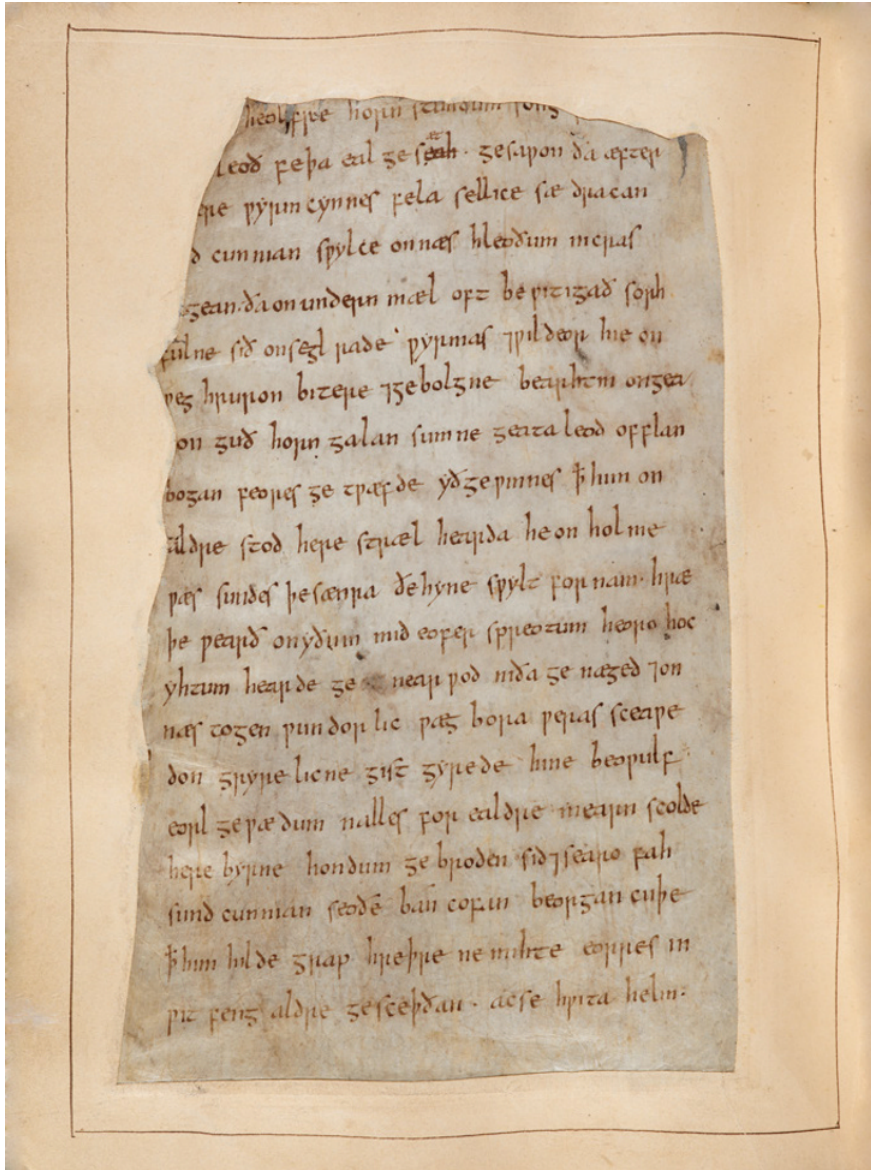 heolfre horn stundum song
leod feþa eal ge sæt · gesaƿon ða æfter
ere ƿyrm cynnes fela sellice sæ dracan
d cunnian sƿylce on næs hleoðum nicras
gean · ða on undern mæl oft be ƿitigað sorh
fulne sið on segl rade ƿyrmas ⁊ ƿildeor hie on
ƿeg hruron bitere ⁊ ge bolgne bearhtm ongea
on guð horn galan sumne geata leod of flan
bogan feores ge tƿæfde yð geƿinnes ꝥ him on
aldre stod here stræl hearda he on holme
ƿæs sundes þe sænra ðe hyne sƿylt for nam · hræ
þe ƿearð on yðum mid eofer spreotum heoro hoc
yhtum hearde ge nearƿod niða ge næged ⁊ on
næs togen ƿundor lic ƿæg bora ƿeras sceaƿe
don gryre licne gist gyrede hine beoƿulf ·
eorl geƿædum nalles for ealdre mearn scolde
here byrne hondum ge broden sid ⁊ searo fah
sund cunnian seo ðe ban cofan beorgan cuþe
ꝥ him hilde grap hreþre ne mihte eorres in
ƿit feng aldre gesceþðan · ac se hƿita helm ·